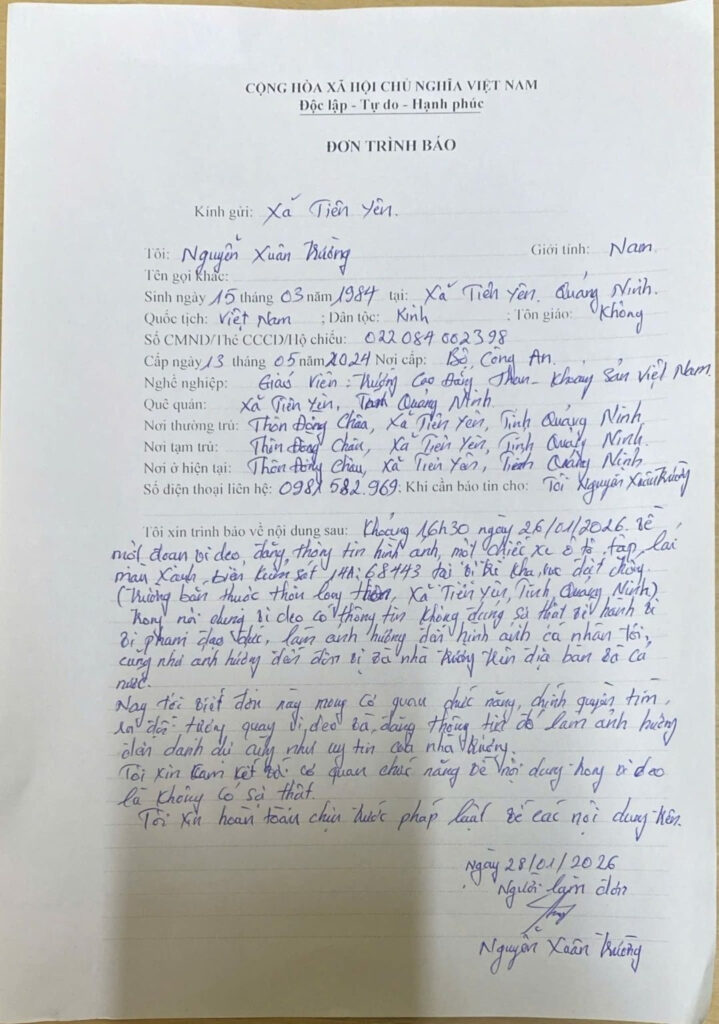 CỘNG HÒA XÃ HỘI CHỦ NGHĨA VIỆT NAM
Độc lập - Tự do - Hạnh phúc
ĐƠN TRÌNH BÁO
Kính gửi: Xã Tiên Yên.
Tôi: Nguyễn Xuân Trường Giới tính: Nam
Tên gọi khác:
Sinh ngày 15 tháng 03 năm 1984 tại: Xã Tiên Yên. Quảng Ninh.
Quốc tịch: Việt Nam ; Dân tộc: Kinh ; Tôn giáo: Không
Số CMND/Thẻ CCCD/Hộ chiếu: 022084002398
Cấp ngày 13 tháng 05 năm 2024 Nơi cấp: Bộ Công An.
Nghề nghiệp: Giáo Viên: Trường Cao Đẳng Than - Khoáng Sản Việt Nam.
Quê quán: Xã Tiên Yên, Tỉnh Quảng Ninh.
Nơi thường trú: Thôn Đông Châu, Xã Tiên Yên, Tỉnh Quảng Ninh.
Nơi tạm trú: Thôn Đông Châu, Xã Tiên Yên, Tỉnh Quảng Ninh.
Nơi ở hiện tại: Thôn Đông Châu, Xã Tiên Yên, Tỉnh Quảng Ninh
Số điện thoại liên hệ: 0981 582.969. Khi cần báo tin cho: Tôi Nguyễn Xuân Trường
Tôi xin trình báo về nội dung sau: Khoảng 16h30 ngày 26/01/2026. Về
một đoạn vi deo, đăng, thông tin hình ảnh, một chiếc xe ô tô, tập, lái
màu Xanh, biển kiểm soát 14A: 68443 tại vị trí khu vực đặt
(Trường bắn thuộc thôn long, Xã Tiên Yên, Tỉnh, Quảng Ninh)
Trong nội dung vi deo có thông tin không đúng sự thật về hành vi
vi phạm đạo đức, làm ảnh hưởng đến hình ảnh cá nhân tôi,
cũng như ảnh hưởng đến đơn vị và nhà trường trên địa bàn và cả
nước.
Nay tôi viết đơn này mong cơ quan chức năng, chính quyền tìm,
ra đối tượng quay vi deo và, đăng thông tin đó làm ảnh hưởng
đến danh dự cũng như uy tín của nhà trường.
Tôi xin cam kết với cơ quan chức năng về nội dung trong vi deo
là không có sự thật.
Tôi xin hoàn toàn chịu trước pháp luật về các nội dung trên.
Ngày 28/01/2026
Người làm đơn
Nguyễn Xuân Trường